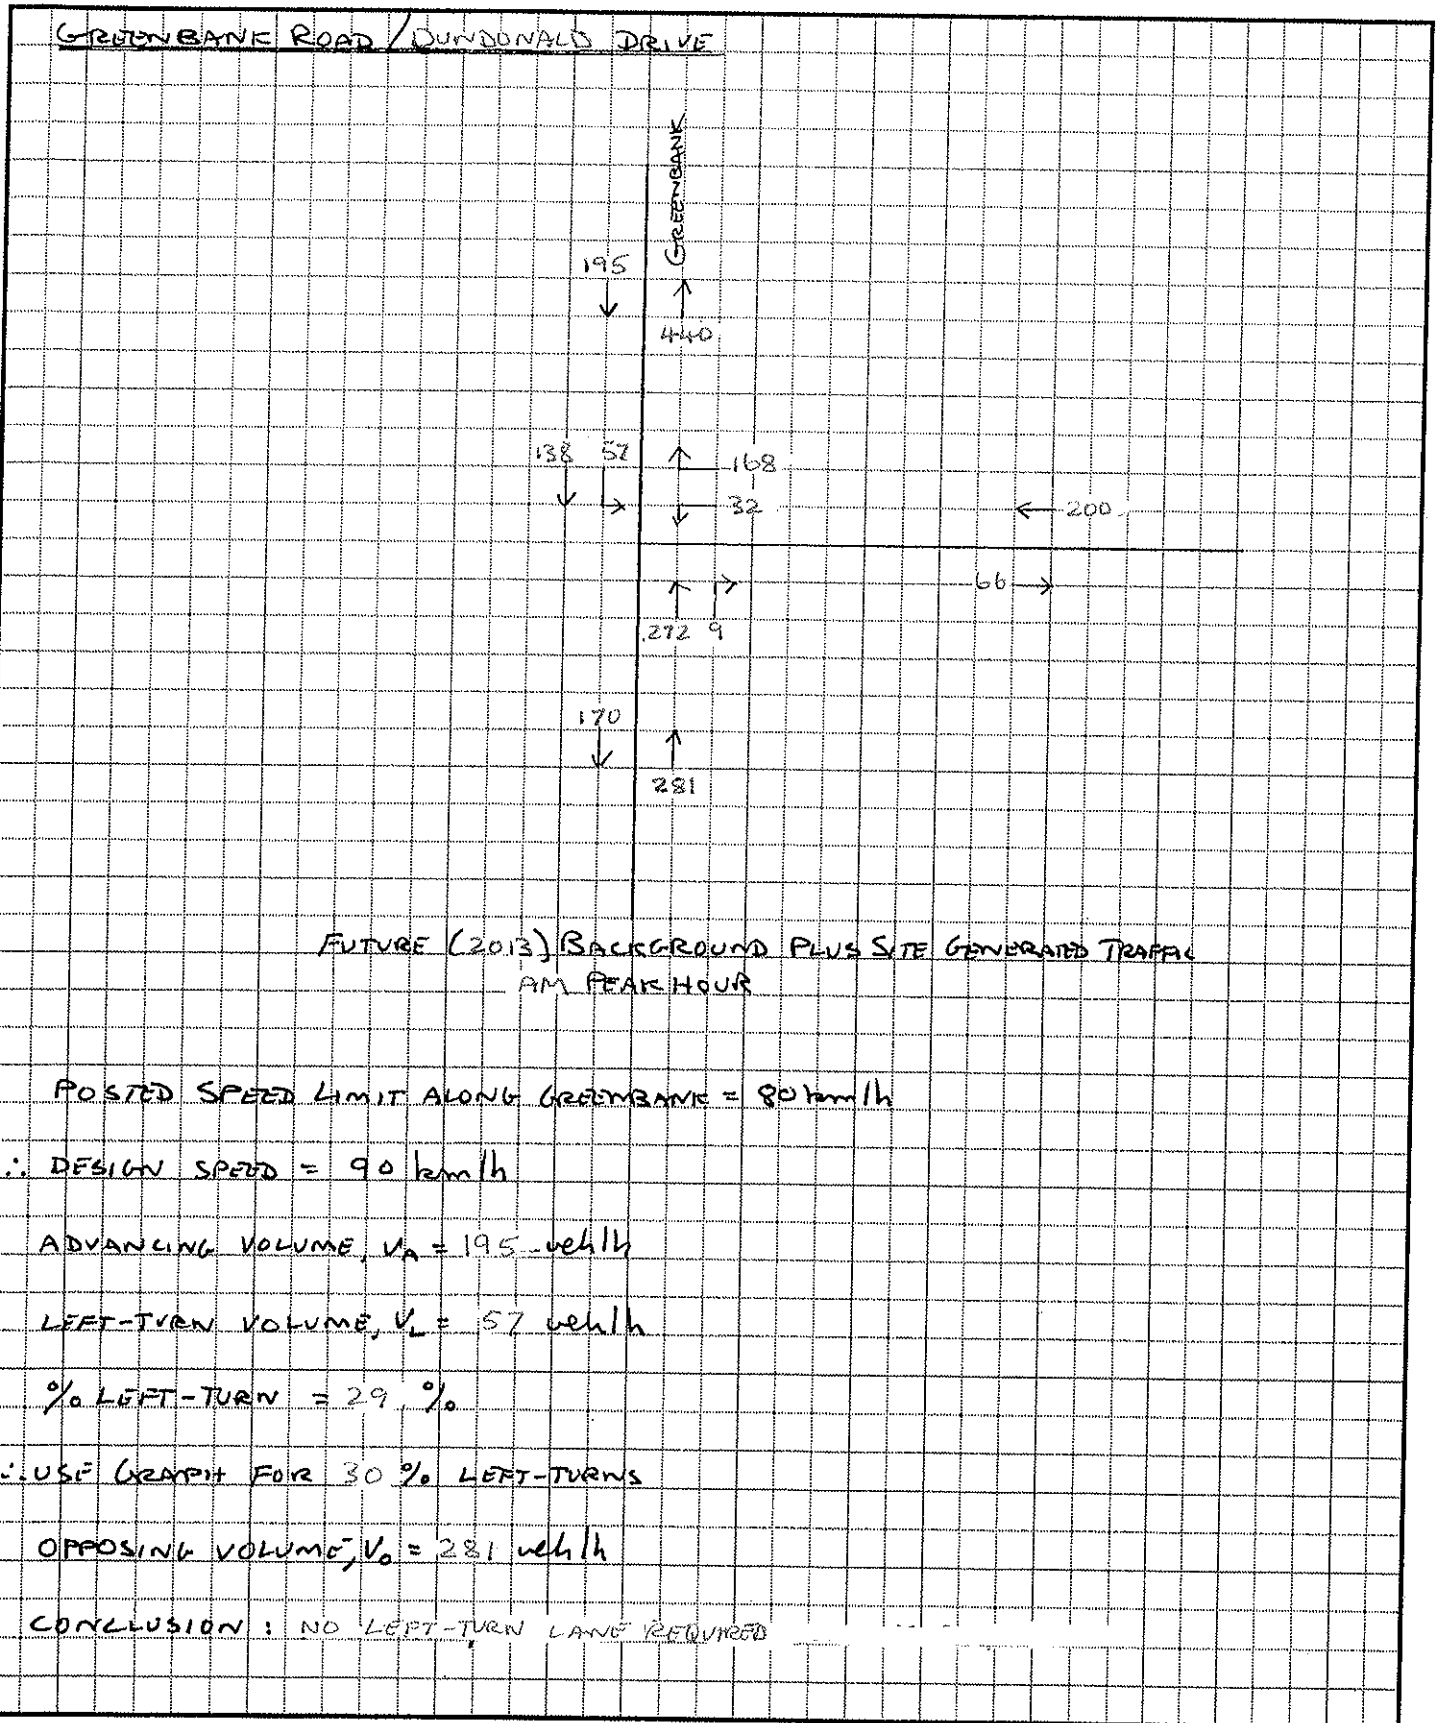 GREENBANK ROAD / DUNDONALD DRIVE
GREENBANK
195
440
138 57
168
32
200
66
272 9
170
281
FUTURE (2013) BACKGROUND PLUS SITE GENERATED TRAFFIC
AM PEAK HOUR
POSTED SPEED LIMIT ALONG GREENBANK = 80 km/h
∴ DESIGN SPEED = 90 km/h
ADVANCING VOLUME, VA = 195 veh/h
LEFT-TURN VOLUME, VL = 57 veh/h
% LEFT-TURN = 29 %
∴ USE GRAPH FOR 30 % LEFT-TURNS
OPPOSING VOLUME, Vo = 281 veh/h
CONCLUSION : NO LEFT-TURN LANE REQUIRED